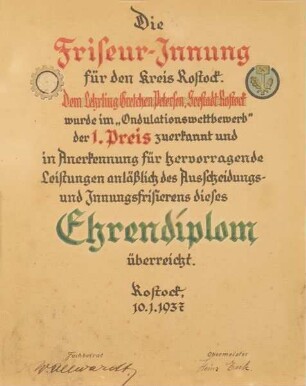 Die
Friseur-Innung
für den Kreis Rostock.
Dem Lehrling Gretchen Petersen, Seestadt Rostock
wurde im „Ondulationswettbewerb"
der 1. Preis zuerkannt und
in Anerkennung für hervorragende
Leistungen anläßlich des Ausscheidungs-
und Innungsfrisierens dieses
Ehrendiplom
überreicht.
Rostock,
10.1.1937
Fachbeirat Obermeister